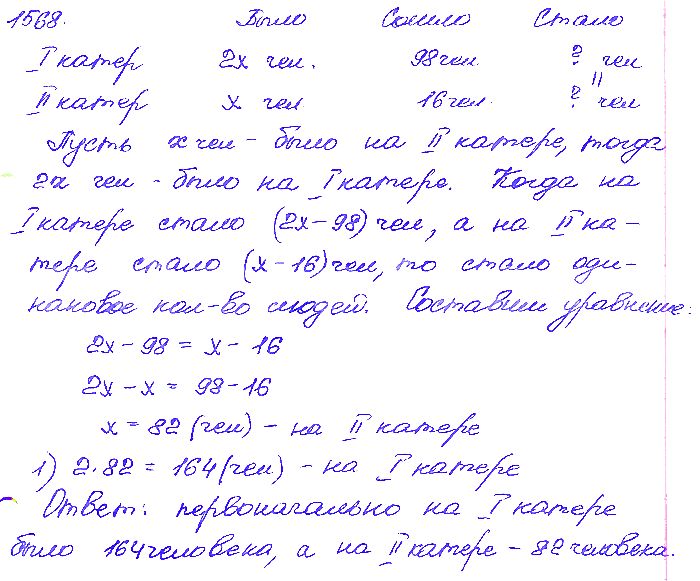 1568. Было Сошло Стало
I катер 2х чел. 98чел ? чел
II катер х чел 16чел. ? чел
Пусть х чел - было на II катере, тогда
2х чел - было на I катере. Когда на
I катере стало (2х-98) чел, а на II ка-
тере стало (х-16) чел, то стало оди-
наковое кол-во людей. Составим уравнение:
2х - 98 = х - 16
2х - х = 98-16
х = 82 (чел) - на II катере
1) 2·82 = 164(чел) - на I катере
Ответ: первоначально на I катере
было 164человека, а на II катере - 82 человека.